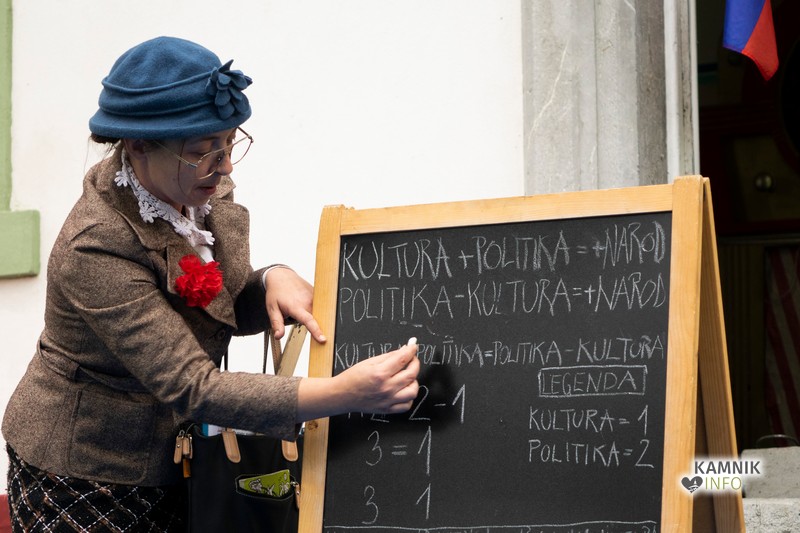 KULTURA + POLITIKA = +NAROD
POLITIKA - KULTURA = +NAROD
KULTURA POLITIKA = POLITIKA - KULTURA
2 - 1
3 = 1
3 1
LEGENDA
KULTURA = 1
POLITIKA = 2
KAMNIK
INFO